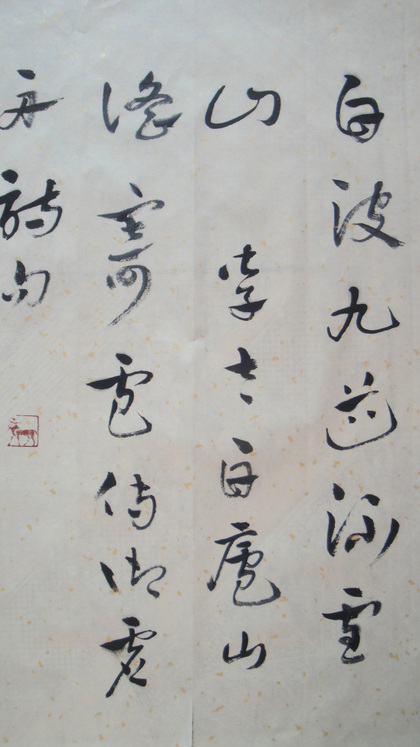 白波九道流雪
山 李太白廬山
謠寄盧侍御虛
舟詩句